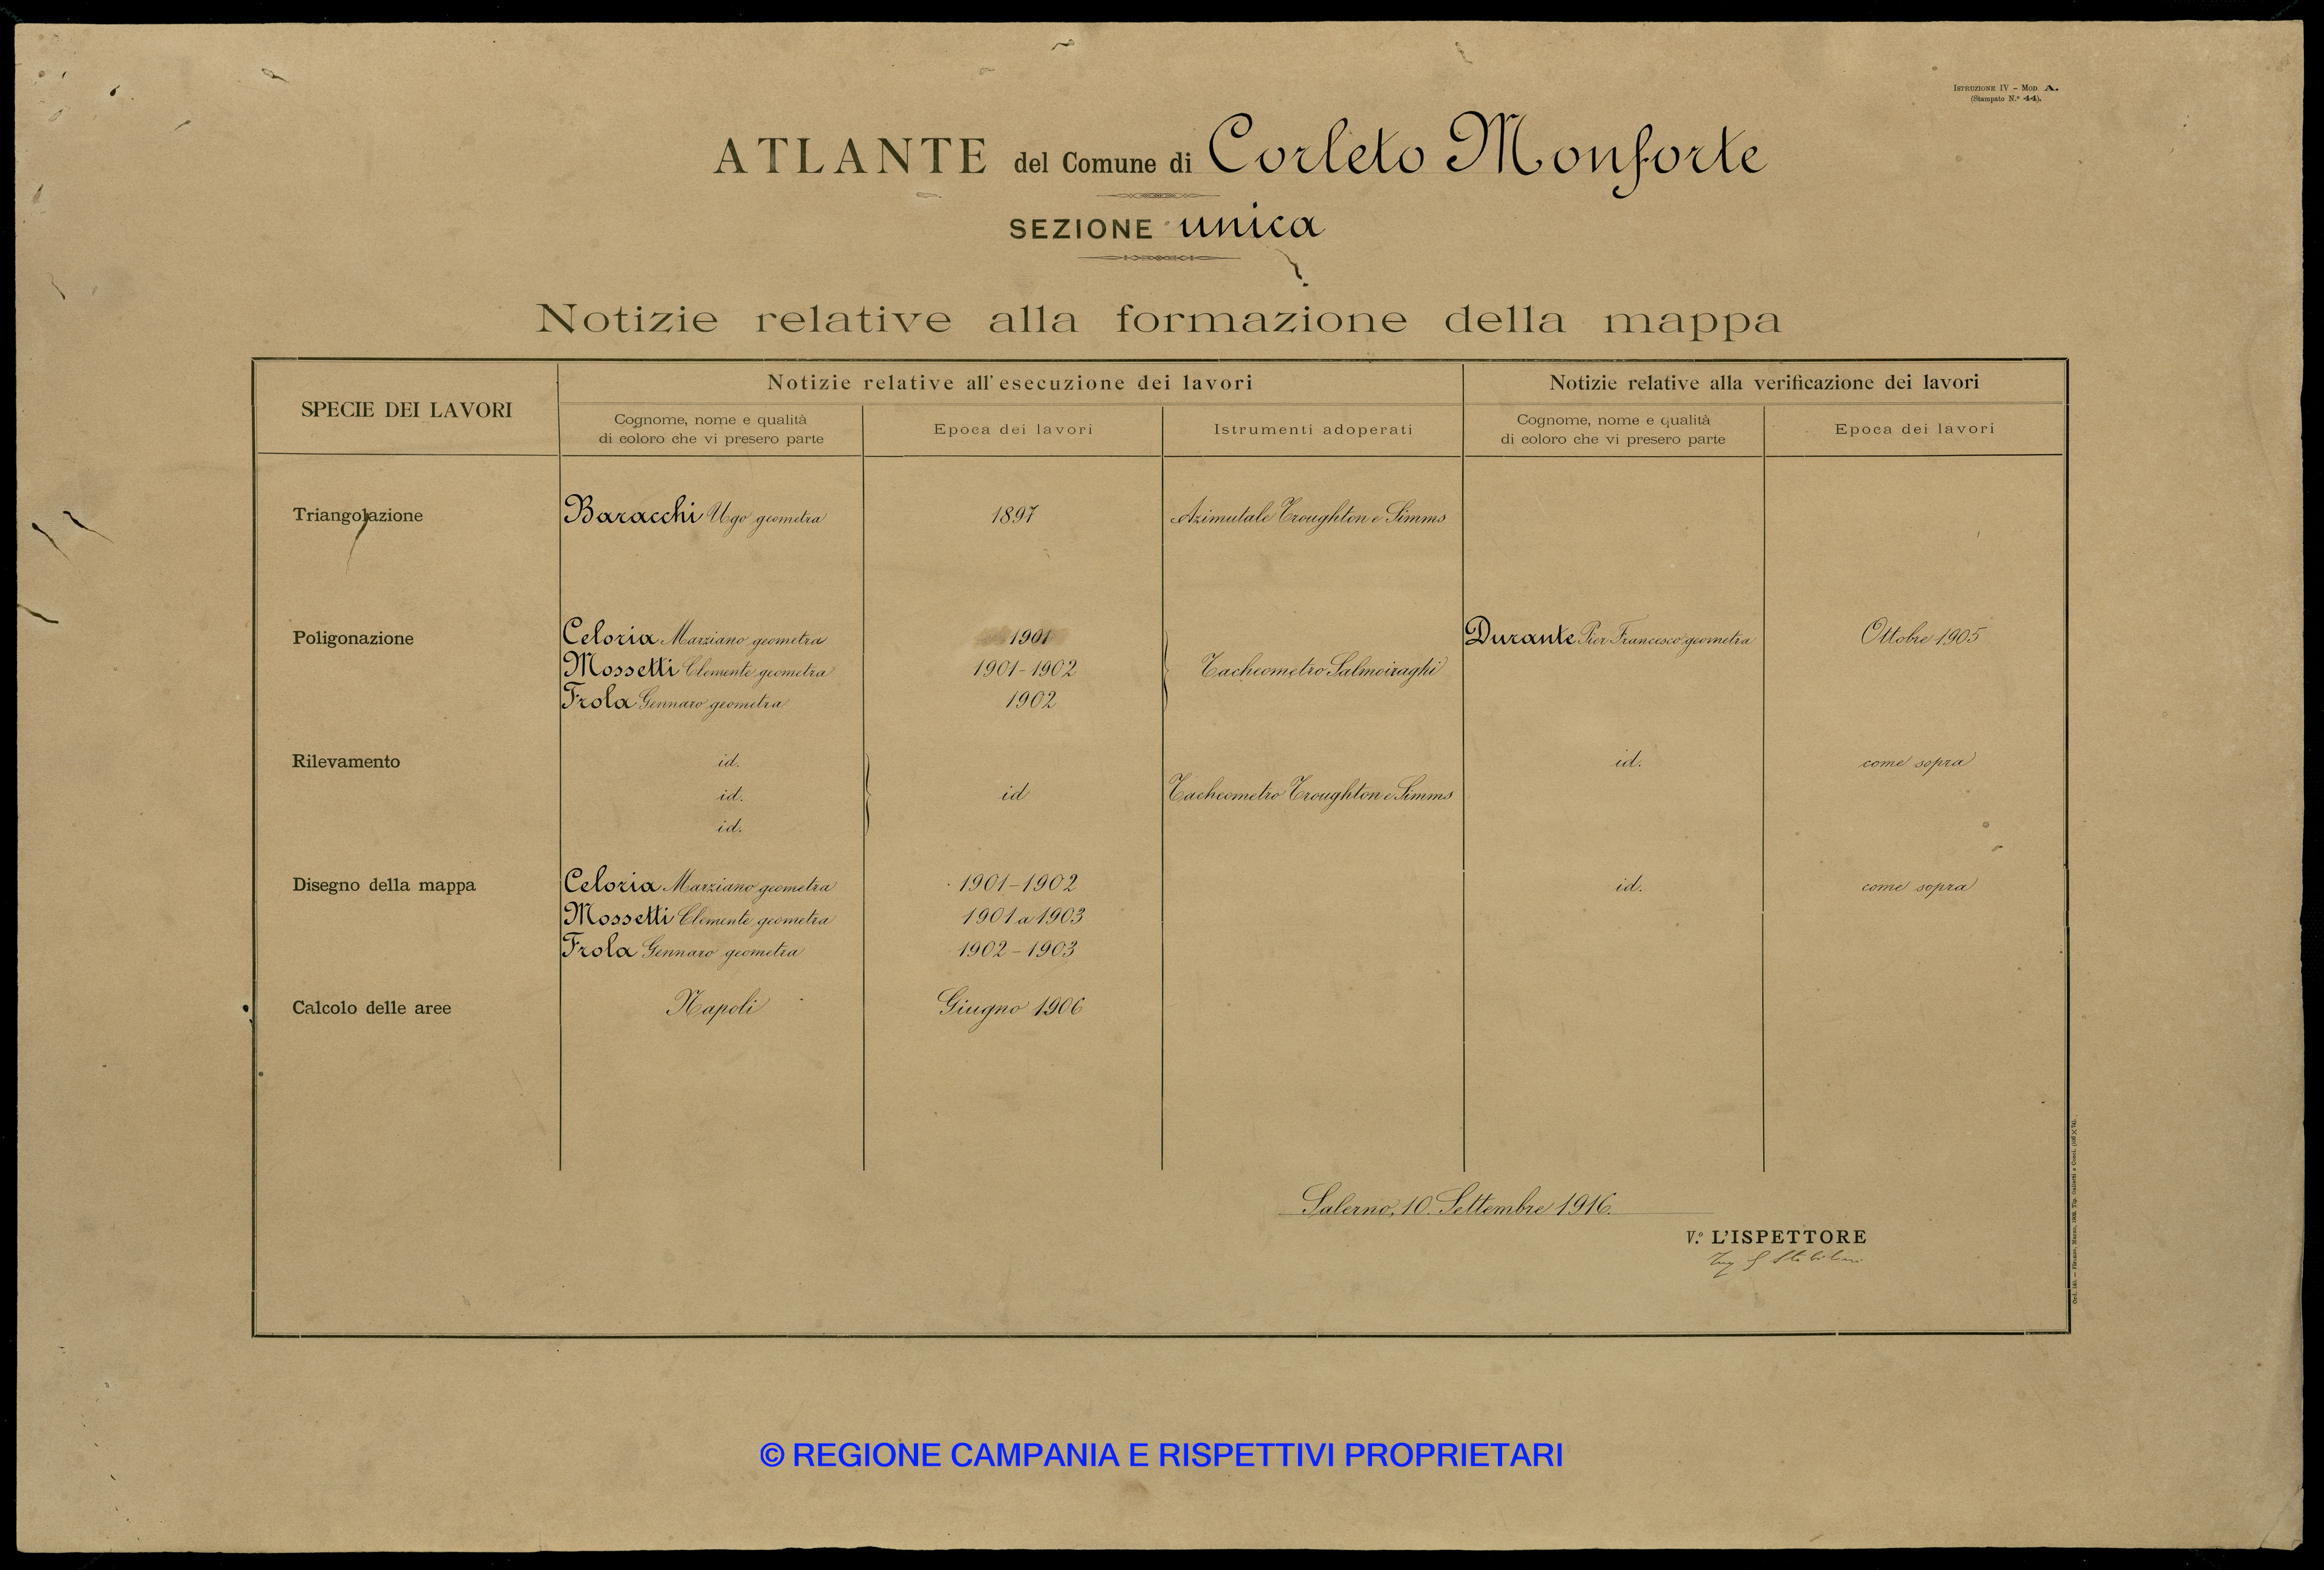 ISTRUZIONE IV – MOD. A.
(Stampato N.° 44).
ATLANTE del Comune di Corleto Monforte
SEZIONE unica
Notizie relative alla formazione della mappa
SPECIE DEI LAVORI
Notizie relative all'esecuzione dei lavori
Notizie relative alla verificazione dei lavori
Cognome, nome e qualità
di coloro che vi presero parte
Epoca dei lavori
Istrumenti adoperati
Cognome, nome e qualità
di coloro che vi presero parte
Epoca dei lavori
Triangolazione Baracchi Ugo geometra 1897 Azimutale Troughton e Simms
Poligonazione Celoria Marziano geometra 1901 Durante Pier Francesco geometra Ottobre 1905
Mossetti Clemente geometra 1901-1902 Tacheometro Salmoiraghi
Frola Gennaro geometra 1902
Rilevamento id. id. come sopra
id. id Tacheometro Troughton e Simms
id.
Disegno della mappa Celoria Marziano geometra 1901-1902 id. come sopra
Mossetti Clemente geometra 1901 a 1903
Frola Gennaro geometra 1902-1903
Calcolo delle aree Napoli Giugno 1906
Salerno, 10 Settembre 1916.
V.° L'ISPETTORE
© REGIONE CAMPANIA E RISPETTIVI PROPRIETARI